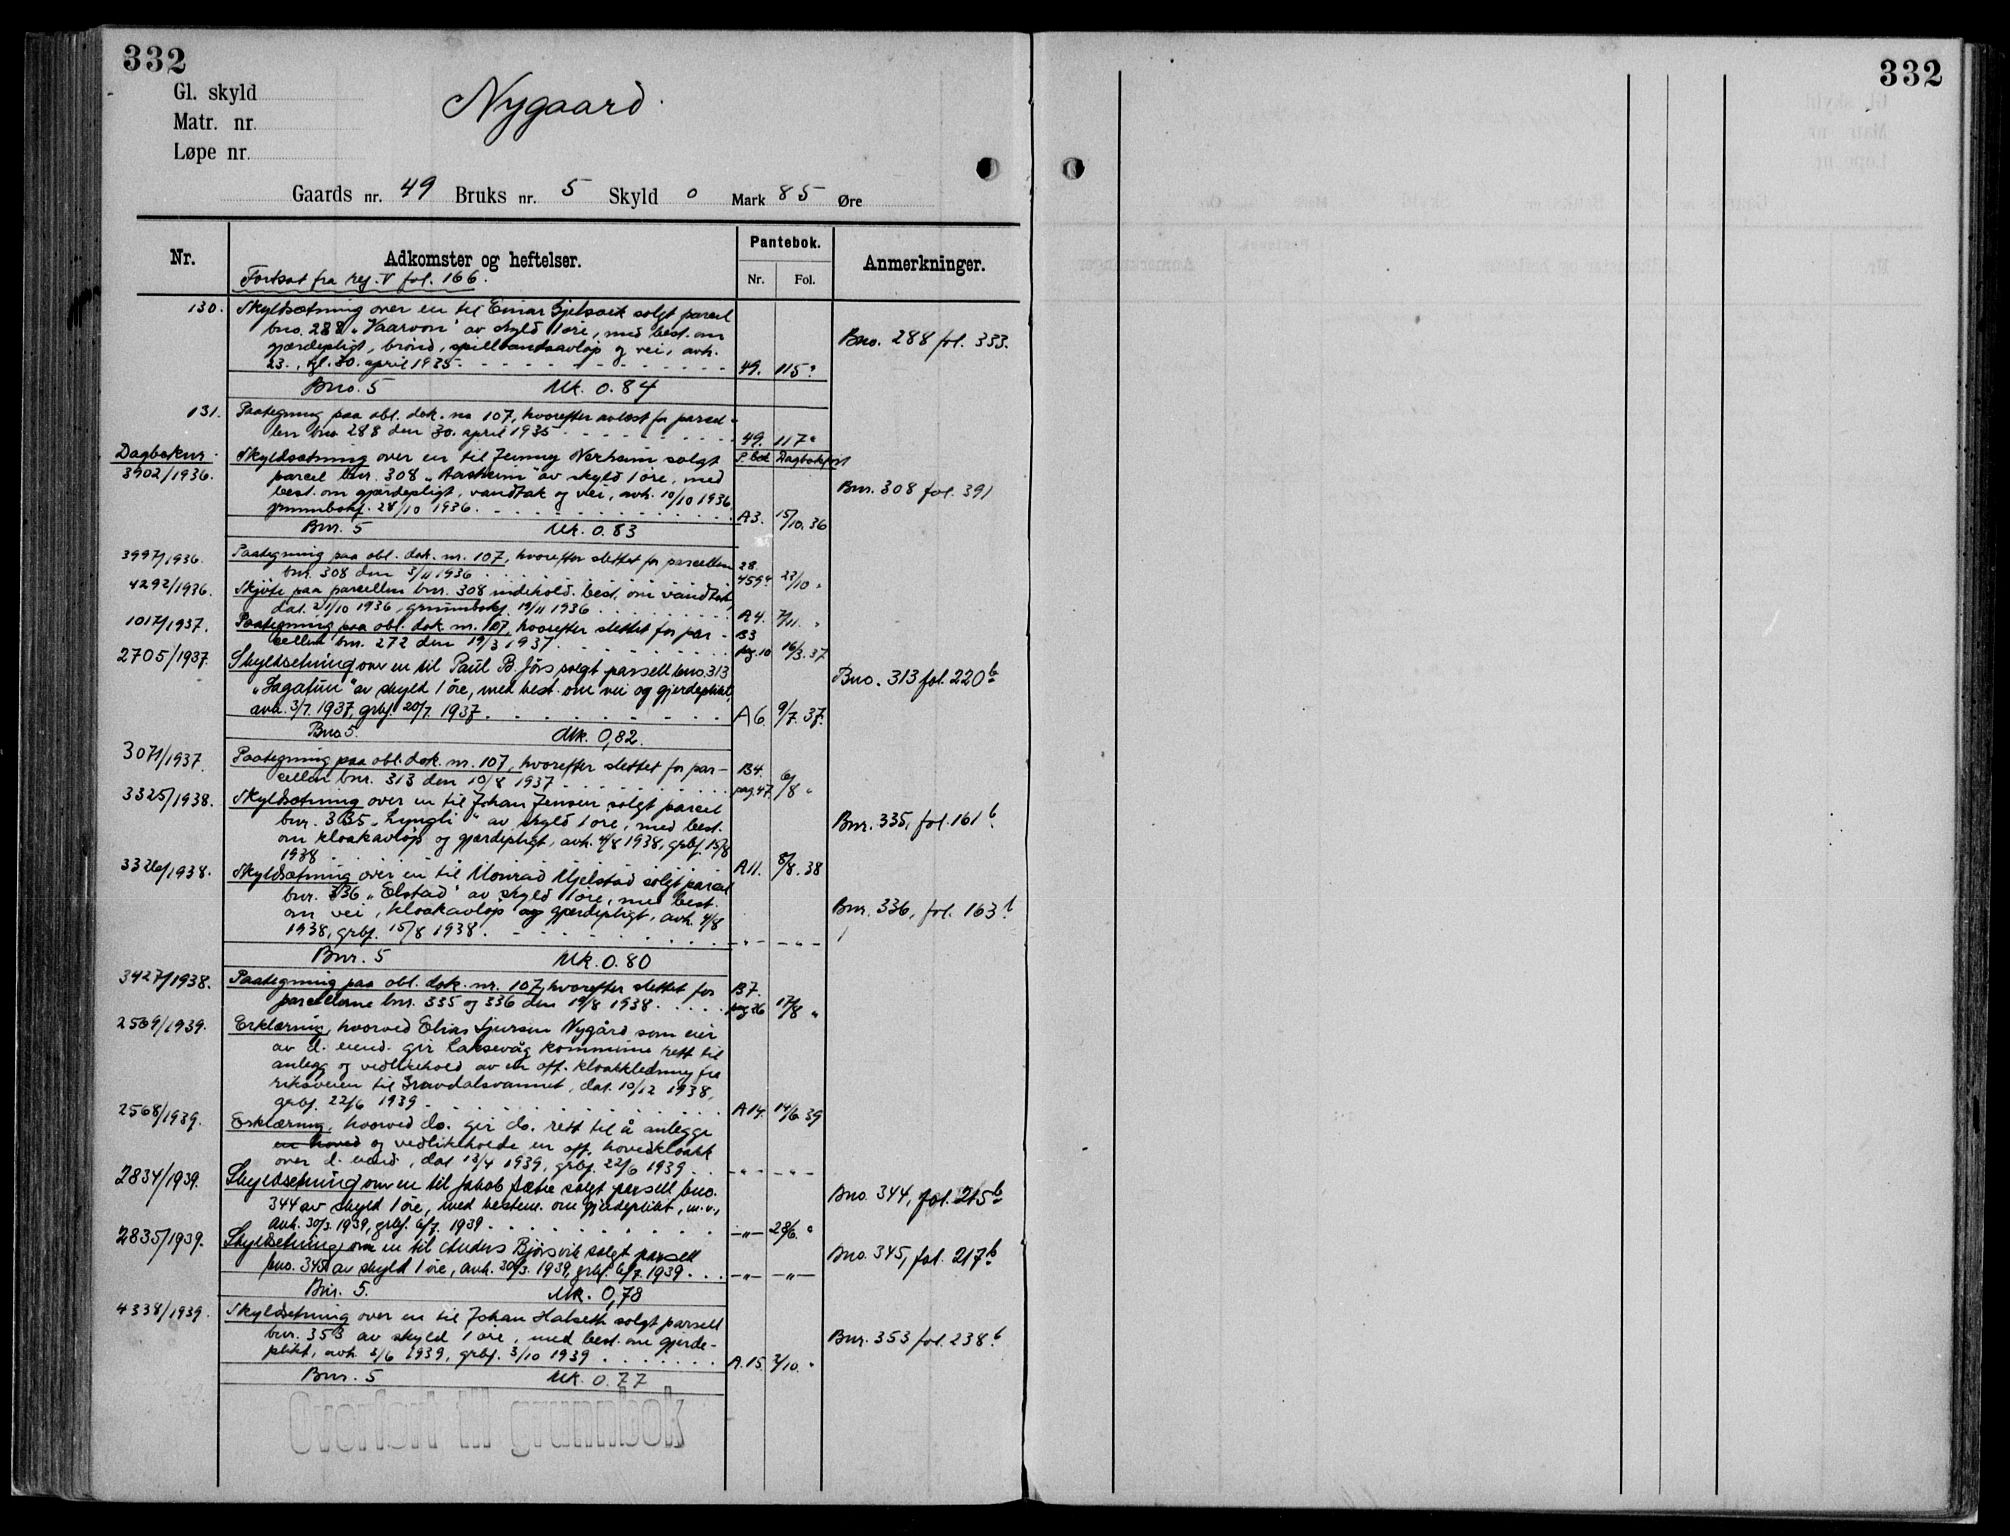 332
332
Gl. skyld
Matr. nr.
Løpe nr.
Nygaard.
Gaards nr. 49 Bruks nr. 5 Skyld 0 Mark 85 Øre
Nr.
Adkomster og heftelser.
Pantebok.
Nr. Fol.
Anmerkninger.
Fortsat fra reg. V fol. 166.
130. Skyldsætning over en til Einar solgt parcel
bno. 288 „Vaarvon" av skyld 1 øre, med best. om
gjærdepligt, brønd, spillvandsavløp og vei, avh.
23., tgl. 30. april 1935 49. 115
Bno. 288 fol. 333.
Bno. 5 Mk. 0.84
131. Paategning paa obl. dok. no 107, hvorefter avløst for parcel-
len bno 288 den 30. april 1935 49. 117
Dagboknr.
P. bok Dagbokført
3902/1936. Skyldsætning over en til Jenny Nerheim solgt
parcel bnr. 308 „Aasheim" av skyld 1 øre, med
best. om gjærdepligt, vandtak og vei, avh. 10/10 1936,
grunnbokf. 28/10 1936. A3. 15/10. 36
Bnr. 308 fol. 391
Bnr. 5 Mk. 0.83
3997/1936. Paategning paa obl. dok. nr. 107, hvorefter slettet for parcellen
bnr. 308 den 3/11 1936 28. 459 23/10 "
4292/1936. Skjøte paa parcellen bnr. 308 indehold. best. om vandtak,
dat. 21/10 1936, grunnbokf. 19/11 1936 A4. 7/11. "
1017/1937. Paategning paa obl. dok. nr. 107, hvorefter slettet for par-
cellen bnr. 272 den 19/3 1937. B3 pag. 10 16/3. 37
2705/1937. Skyldsetning over en til Paul B. Jörs solgt parsell bno. 313
„Hagatun" av skyld 1 øre, med best. om vei og gjerdeplikt,
avh. 3/7. 1937, grbf. 20/7. 1937. A6. 9/7. 37.
Bno. 313 fol. 220 b
Bno 5. Mk. 0,82.
3071/1937. Paategning paa obl. dok. nr. 107, hvorefter slettet for par-
cellen bnr. 313 den 10/8 1937 B4. pag. 47 6/8 "
3325/1938. Skyldsætning over en til Johan Jensen solgt parcel
bnr. 335 „Lyngli" av skyld 1 øre, med best.
om kloakavløp og gjærdepligt, avh. 4/8 1938, grbf. 15/8
1938 A11. 8/8. 38
Bnr. 335, fol. 161 b.
3326/1938. Skyldsætning over en til Monrad Mjelstad solgt parcel
bnr. 336 „Elstad" av skyld 1 øre, med best.
om vei, kloakavløp og gjærdepligt, avh. 4/8
1938, grbf. 15/8 1938. - " - - " -
Bnr. 336, fol. 163 b
Bnr. 5 Mk. 0.80
3427/1938. Paategning paa obl. dok. nr. 107, hvorefter slettet for
parcellerne bnr. 335 og 336 den 19/8 1938. B7. pag 26 17/8 "
2569/1939. Erklæring, hvorved Elias Sjursen Nygård som eier
av d. eiend. gir Laksevåg kommune rett til
anlegg og vedlikehold av en off. kloakkledning fra
riksveien til Gravdalsvannet, dat. 10/12 1938,
grbf. 22/6 1939 A14. 14/6 39
2568/1939. Erklæring, hvorved do. gir do. rett til å anlegge
en hoved og vedlikeholde en off. hovedkloakk
over d. eiend., dat 13/4 1939, grbf. 22/6 1939 - " - - " -
2834/1939. Skyldsetning over en til Jakob Sætre solgt parsell bno.
344 av skyld 1 øre, med bestem. om gjerdeplikt, m.v.,
avh. 30/3. 1939, grbf. 6/7. 1939 - " - 28/6. "
Bno. 344, fol. 215 b
2835/1939. Skyldsetning over en til Anders Bjørsvik solgt parsell
bno. 345 av skyld 1 øre, avh. 30/3. 1939, grbf. 6/7. 1939 - " - - " -
Bno. 345, fol. 217 b
Bnr. 5. Mk. 0,78
4338/1939. Skyldsetning over en til Johan Halseth solgt parsell
bnr. 353 av skyld 1 øre, med best. om gjerde-
plikt, avh. 2/6 1939, grbf. 3/10 1939 A.15. 2/10. "
Bnr. 353 fol. 238 b
Bnr. 5 Mk. 0.77
Overført til grunnbok